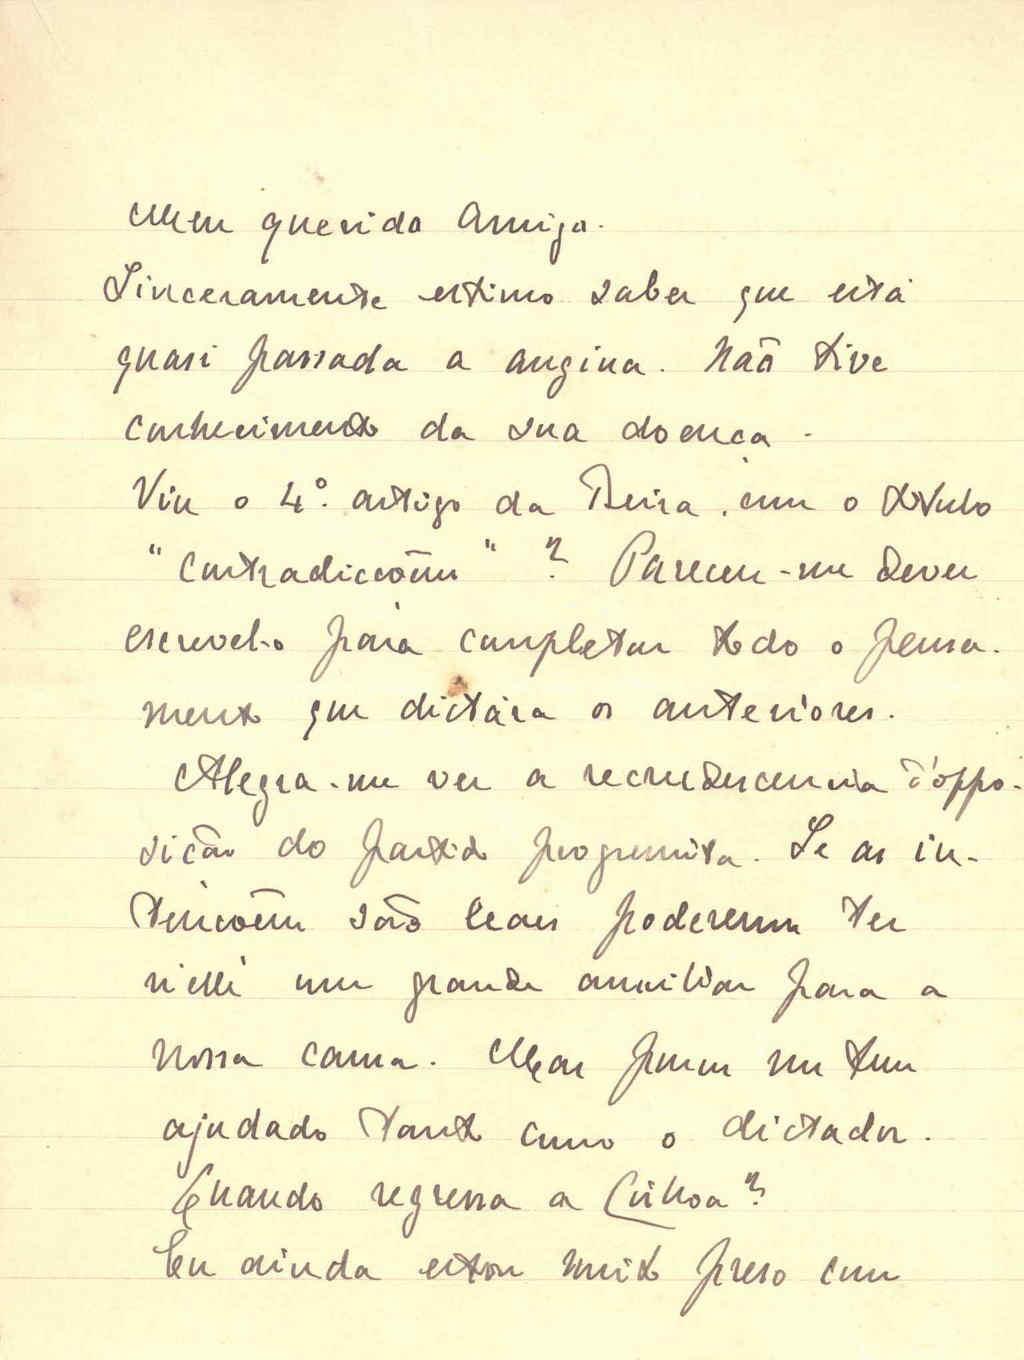 Meu querido Amigo.
Sinceramente estimo saber que está
quasi passada a angina. Não tive
conhecimento da sua doença.
Viu o 4º. artigo da Beira, com o titulo
"Contradicções"? Pareceu-me dever
escrevel-o para completar todo o pensa-
mento que dictára os anteriores.
Alegra-me ver a recrudescencia d'oppo-
sição do partido progressista. Se as in-
tenções são leaes poderemos ter
n'elle um grande auxiliar para a
nossa causa. Mas poucos nos tem
ajudado tanto como o dictador.
Quando regressa a Lisboa?
Eu ainda estou muito preso com